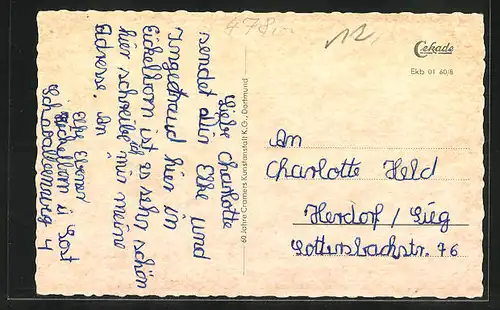 478
12,
Liebe Charlotte
sendet dir Elke und
Irmgetraud hier in
Eickelborn ist es sehr schön
hier, schreibe ich dir meine
Adresse. An
Elke Ebener
Eickelborn ü Sost
Schwalbenweg 4
60 Jahre Cramers Kunstanstalt K.G., Dortmund
Cekade
Ekb 01 60/8
An
Charlotte Held
Herdorf / Sieg
Sottersbachstr. 76